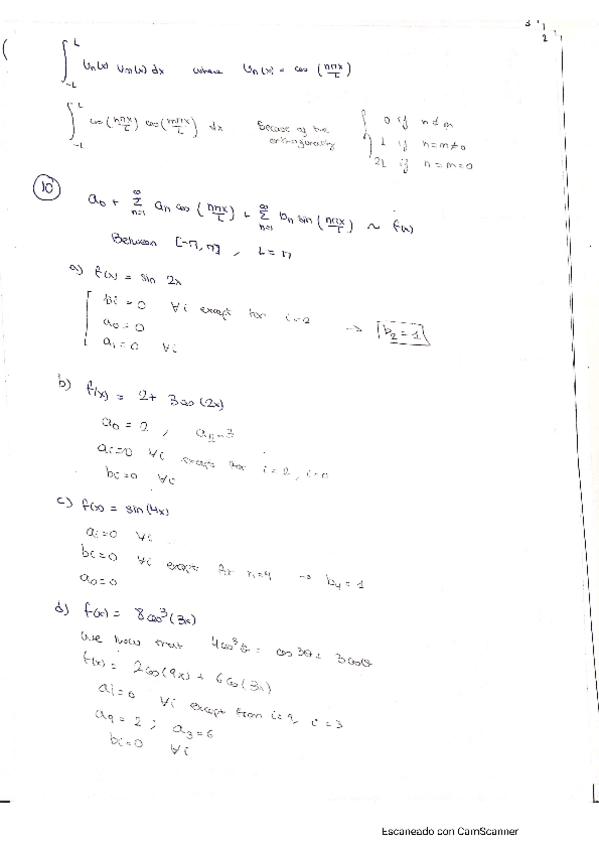 ∫_{-L}^{L} Un(x) Um(x) dx where Un(x) = cos (nπx/L)
∫_{-L}^{L} cos (nπx/L) cos (mπx/L) dx Because of the orthogonality { 0 if n≠m
L if n=m≠0
2L if n=m=0
10
a0 + Σ_{n=1}^{∞} an cos (nπx/L) + Σ_{n=1}^{∞} bn sin (nπx/L) ~ f(x)
Between [-π, π] , L = π
a) f(x) = sin 2x
bi = 0 ∀i except for i=2 → b2 = 1
a0 = 0
ai = 0 ∀i
b) f(x) = 2 + 3cos(2x)
a0 = 2 , a2 = 3
ai=0 ∀i except for i=2, i=0
bi=0 ∀i
c) f(x) = sin(4x)
ai=0 ∀i
bi=0 ∀i except for n=4 → b4 = 1
a0=0
d) f(x) = 8cos³(3x)
We know that 4cos³θ = cos3θ + 3cosθ
f(x) = 2cos(9x) + 6cos(3x)
ai=0 ∀i except from i=9, i=3
a9 = 2 ; a3 = 6
bi=0 ∀i
Escaneado con CamScanner